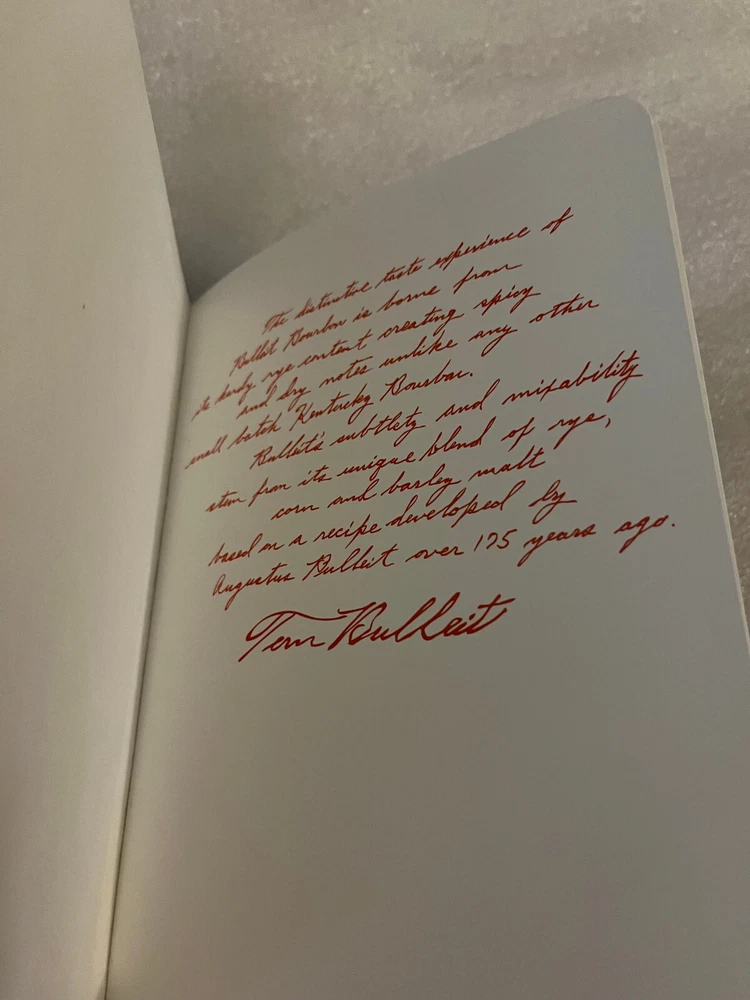 The distinctive taste experience of
Bulleit Bourbon is borne from
its hardy rye content creating spicy
and dry notes unlike any other
small batch Kentucky Bourbon.
Bulleit's subtlety and mixability
stem from its unique blend of rye,
corn and barley malt
based on a recipe developed by
Augustus Bulleit over 175 years ago.
Tom Bulleit